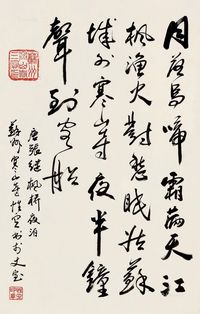 月落烏啼霜滿天江
楓漁火對愁眠姑蘇
城外寒山寺夜半鐘
聲到客船
唐張繼楓橋夜泊
蘇州寒山寺性空書於丈室